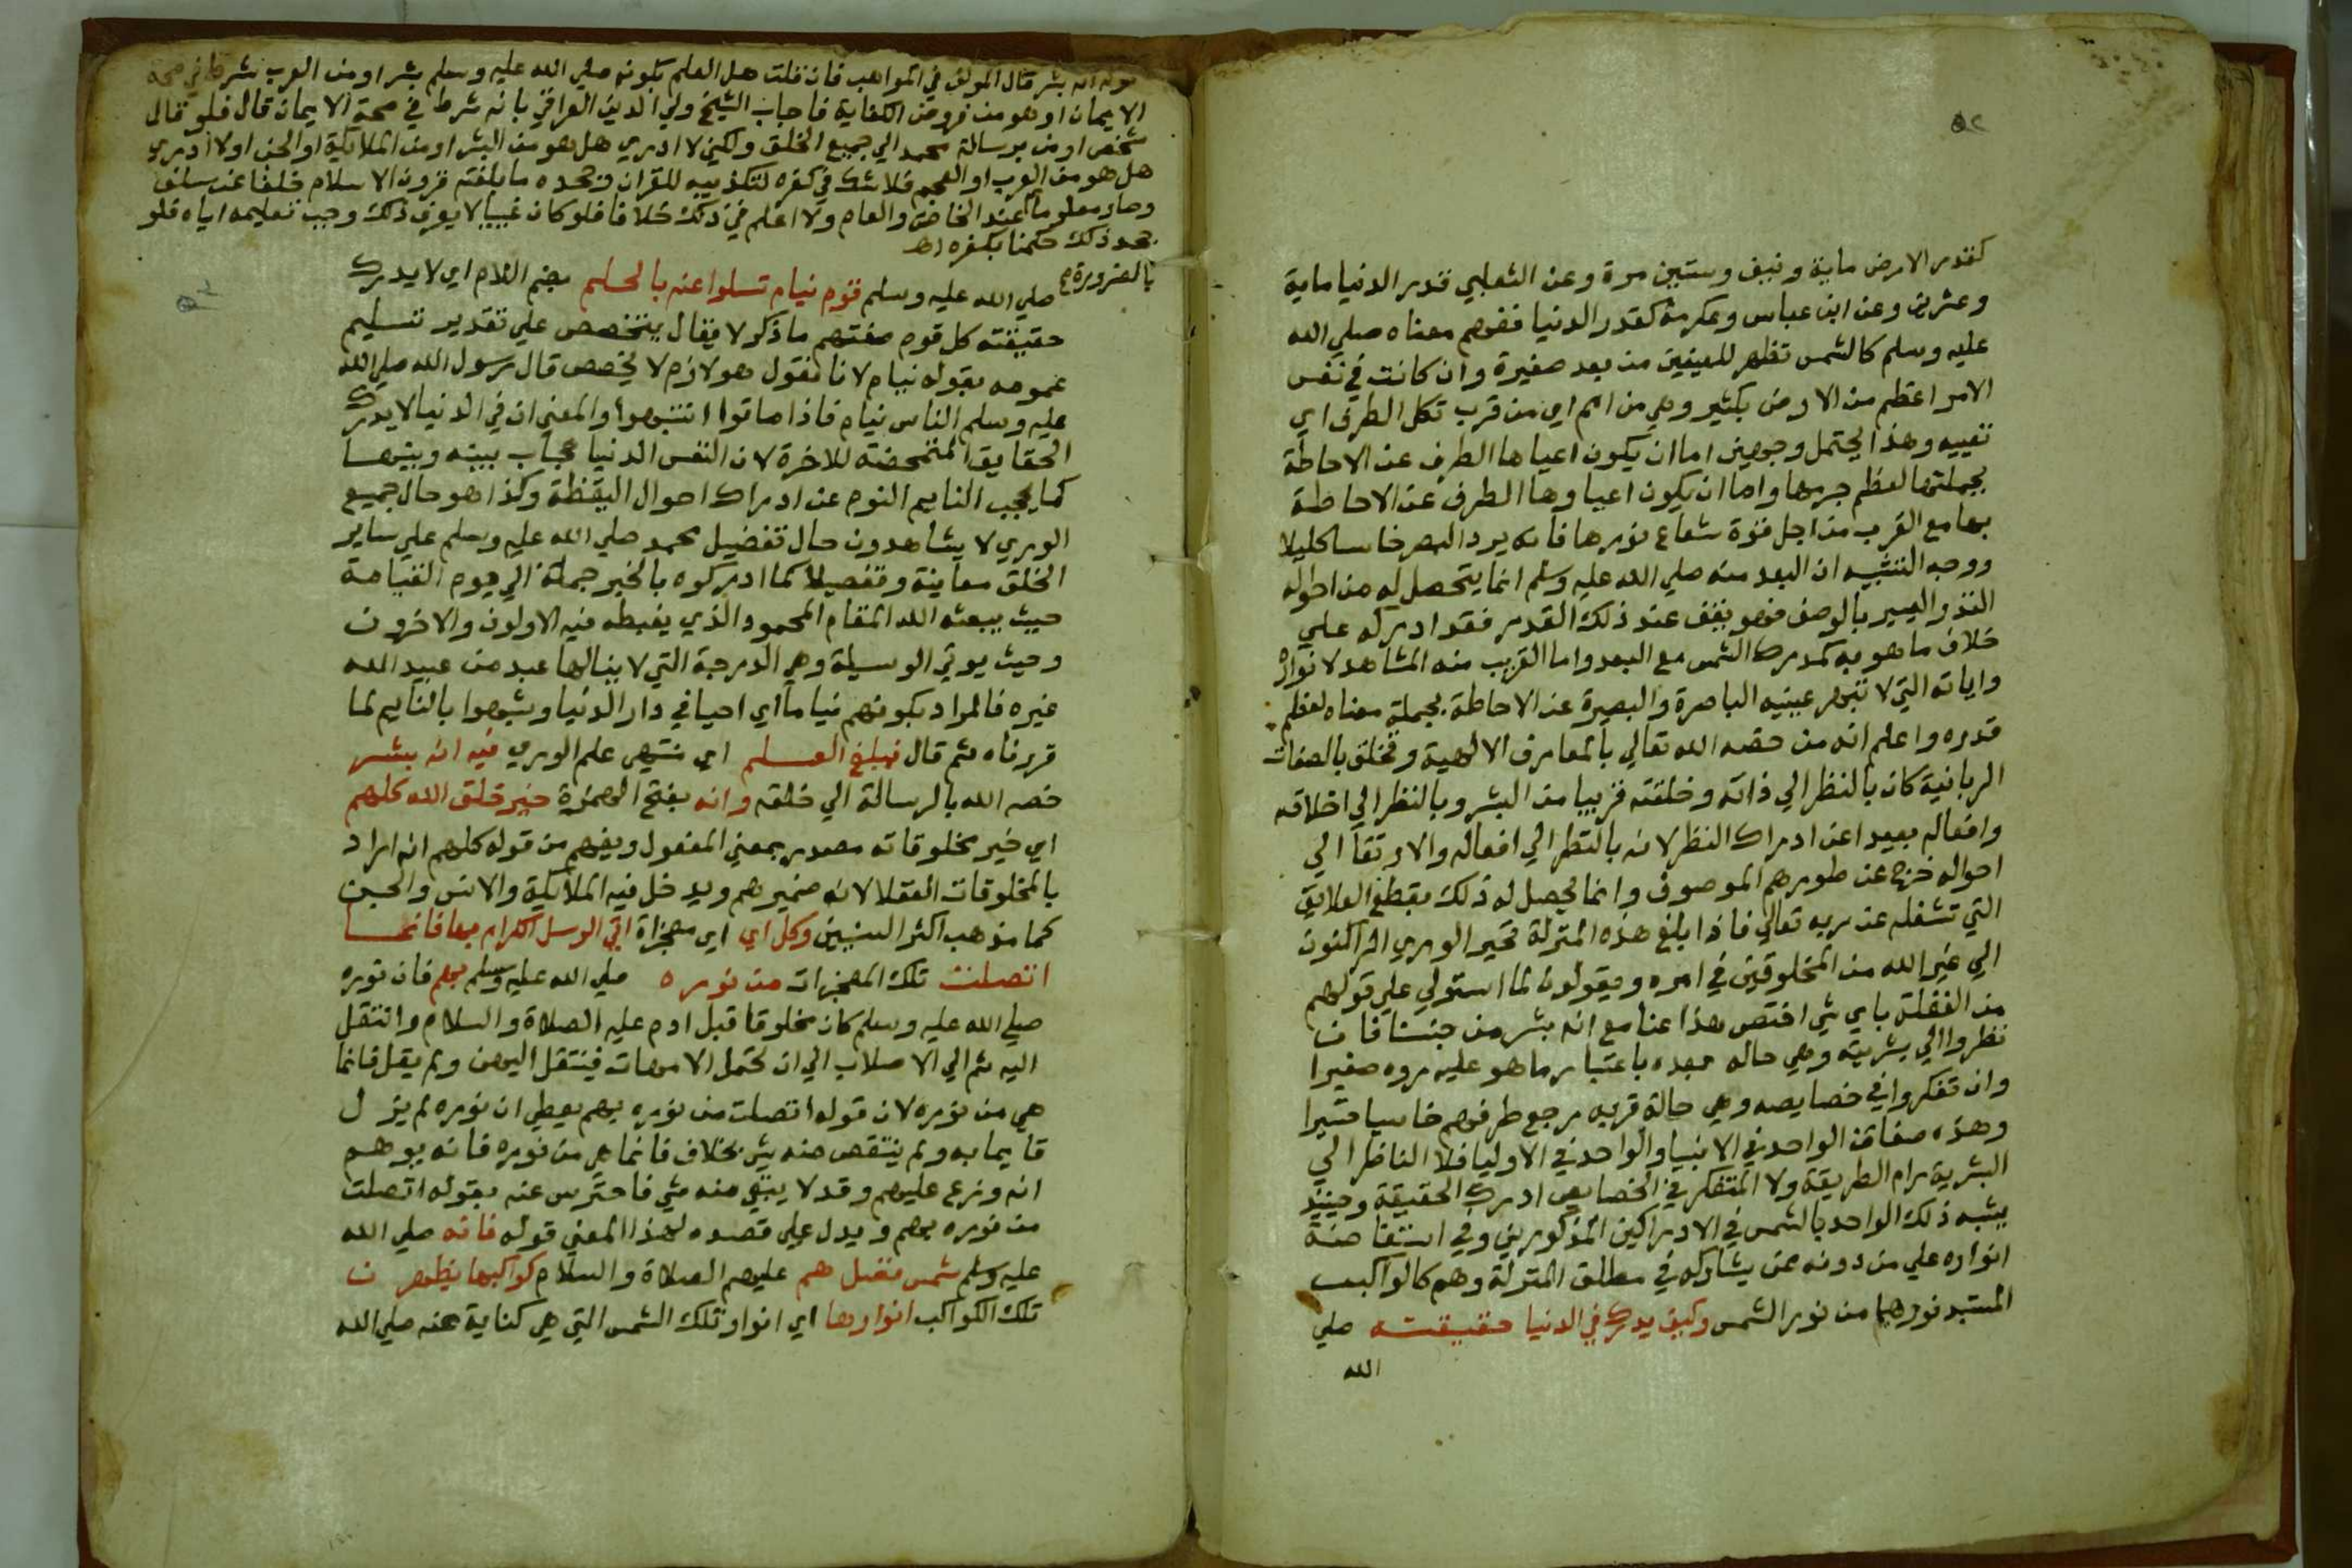 ٥٢
كقدر الارض ماية ونيف وستين مرة وعن الثعلبي قدر الدنيا ماية
وعشرين وعن ابن عباس وعكرمة كقدر الدنيا ففهم معناه صلي الله
عليه وسلم كالشمس تظهر للعينين من بعد صغيرة وان كانت في نفس
الامر اعظم من الارض بكثير وهي من امم اي من قرب تكل الطرف اي
تعييه وهذا يحتمل وجهين اما ان يكون اعياها الطرف عن الاحاطة
بجملتها لعظم جرمها واما ان يكون اعياوها الطرف عن الاحاطة
بها مع القرب من اجل قوة شعاع نورها فانه يرد البصر خاسا كليلا
ووجه التشبيه ان البعد منه صلي الله عليه وسلم انما يتحصل له من احواله
النذر اليسير بالوصف فهو يقف عند ذلك القدر فقد ادركه علي
خلاف ما هو به كمدرك الشمس مع البعد واما القريب منه المشاهد لانواره
واياته التي لا تبهر عينيه الباصرة والبصيرة عن الاحاطة بجملة معناه لعظم
قدره واعلم انه من خصه الله تعالي بالمعارف الالهية وتخلق بالصفات
الربانية كان بالنظر الي ذاته وخلقته قريبا من البشر وبالنظر الي اخلاقه
وافعاله بعيدا عن ادراك النظر لانه بالنظر الي افعاله والارتقا الي
احواله خرج عن طورهم الموصوف وانما يحصل له ذلك بقطع العلايق
التي تشغله عن ربه تعالي فاذا بلغ هذه المنزلة تحير الوري الراكنون
الي غير الله من المخلوقين في امره ويقولون لما استولي علي قولهم
من الغفلة باي شي اختص هذا عنا مع انه بشر من جنسنا فان
نظروا الي بشريته وهي حاله بعده باعتبار ما هو عليه روه صغيرا
وان تفكروا في خصايصه وهي حالة قربه رجع طرفهم خاسيا حسيرا
وهذه صفات الواحد في الانبيا والواحد في الاوليا فلا الناظر الي
البشرية رام الطريقة ولا المتفكر في الخصايص ادرك الحقيقة وحينيذ
يشبه ذلك الواحد بالشمس في الادراكين المذكورين وفي استفاضة
انواره علي من دونه ممن يشاركه في مطلق المنزلة وهم كالواكب
المستمد نورهما من نور الشمس وكيف يدرك في الدنيا حقيقته صلي
الله
قوله انه بشر قال المولف في المواهب فان قلت هل العلم بكونه صلي الله عليه وسلم بشرا ومن العرب شرط في صحة
الايمان او هو من فروض الكفاية فاجاب الشيخ ولي الدين العراقي بانه شرط في صحة الايمان قال فلو قال
شخص اومن برسالة محمد الي جميع الخلق ولكن لا ادري هل هو من البشر او من الملايكة او الجن او لا ادري
هل هو من العرب او العجم فلا شك في كفره لتكذيبه للقران وجحده ما بلغته قرون الاسلام خلفا عن سلف
وصار معلوما عند الخاص والعام ولا اعلم في ذلك خلافا فلو كان غبيا لا يعرف ذلك وجب تعليمه اياه فلو
جحد ذلك حكمنا بكفره اه
بالضرورة
صلي الله عليه وسلم قوم نيام تسلوا عنه بالحلم بضم اللام اي لا يدرك
حقيقته كل قوم صفتهم ما ذكر لا يقال يتخصص علي تقدير تسليم
عمومه بقوله نيام لانا نقول هو لازم لا يخصص قال رسول الله صلي الله
عليه وسلم الناس نيام فاذا ماتوا انتبهوا والمعني ان في الدنيا لا يدرك
الحقايق المتمحضة للاخرة لان النفس الدنيا حجاب بينه وبينها
كما يحجب النايم النوم عن ادراك احوال اليقظة وكذا هو حال جميع
الوري لا يشاهدون حال تفضيل محمد صلي الله عليه وسلم علي ساير
الخلق معاينة وتفصيلا كما ادركوه بالخبر جملة الي يوم القيامة
حيث يبعثه الله المقام المحمود الذي يغبطه فيه الاولون والاخرون
وحيث يوتي الوسيلة وهي الدرجة التي لا ينالها عبد من عبيد الله
غيره فالمراد بكونهم نياما اي احيا في دار الدنيا وشبهوا بالنايم لما
قررناه ثم قال فمبلغ العلم اي منتهي علم الوري فيه انه بشر
خصه الله بالرسالة الي خلقه وانه بفتح الهمزة خير خلق الله كلهم
اي خير مخلوقاته مصدر بمعني المفعول ويفهم من قوله كلهم انه اراد
بالمخلوقات العقلا لانه ضميرهم ويدخل فيه الملايكة والانس والجن
كما مذهب اكثر السنيين وكل اي اي معجزاة اتي الرسل الكرام بها فانما
اتصلت تلك المعجزات من نوره صلي الله عليه وسلم بهم فان نوره
صلي الله عليه وسلم كان مخلوقا قبل ادم عليه الصلاة والسلام وانتقل
اليه ثم الي الاصلاب الي ان تحمل الامهات فينتقل اليهن ولم يقل فانما
هي من نوره لان قوله اتصلت من نوره بهم يعطي ان نوره لم يزل
قايما به ولم ينتقص منه شي بخلاف فانما هي من نوره فانه يوهم
انه وزع عليهم وقد لا يبقي منه شي فاحترس عنه بقوله اتصلت
من نوره بهم ويدل علي قصده لهذا المعني قوله فانه صلي الله
عليه وسلم شمس فضل هم عليهم الصلاة والسلام كواكبها يظهرن
تلك الكواكب انوارها اي انوار تلك الشمس التي هي كناية عنه صلي الله